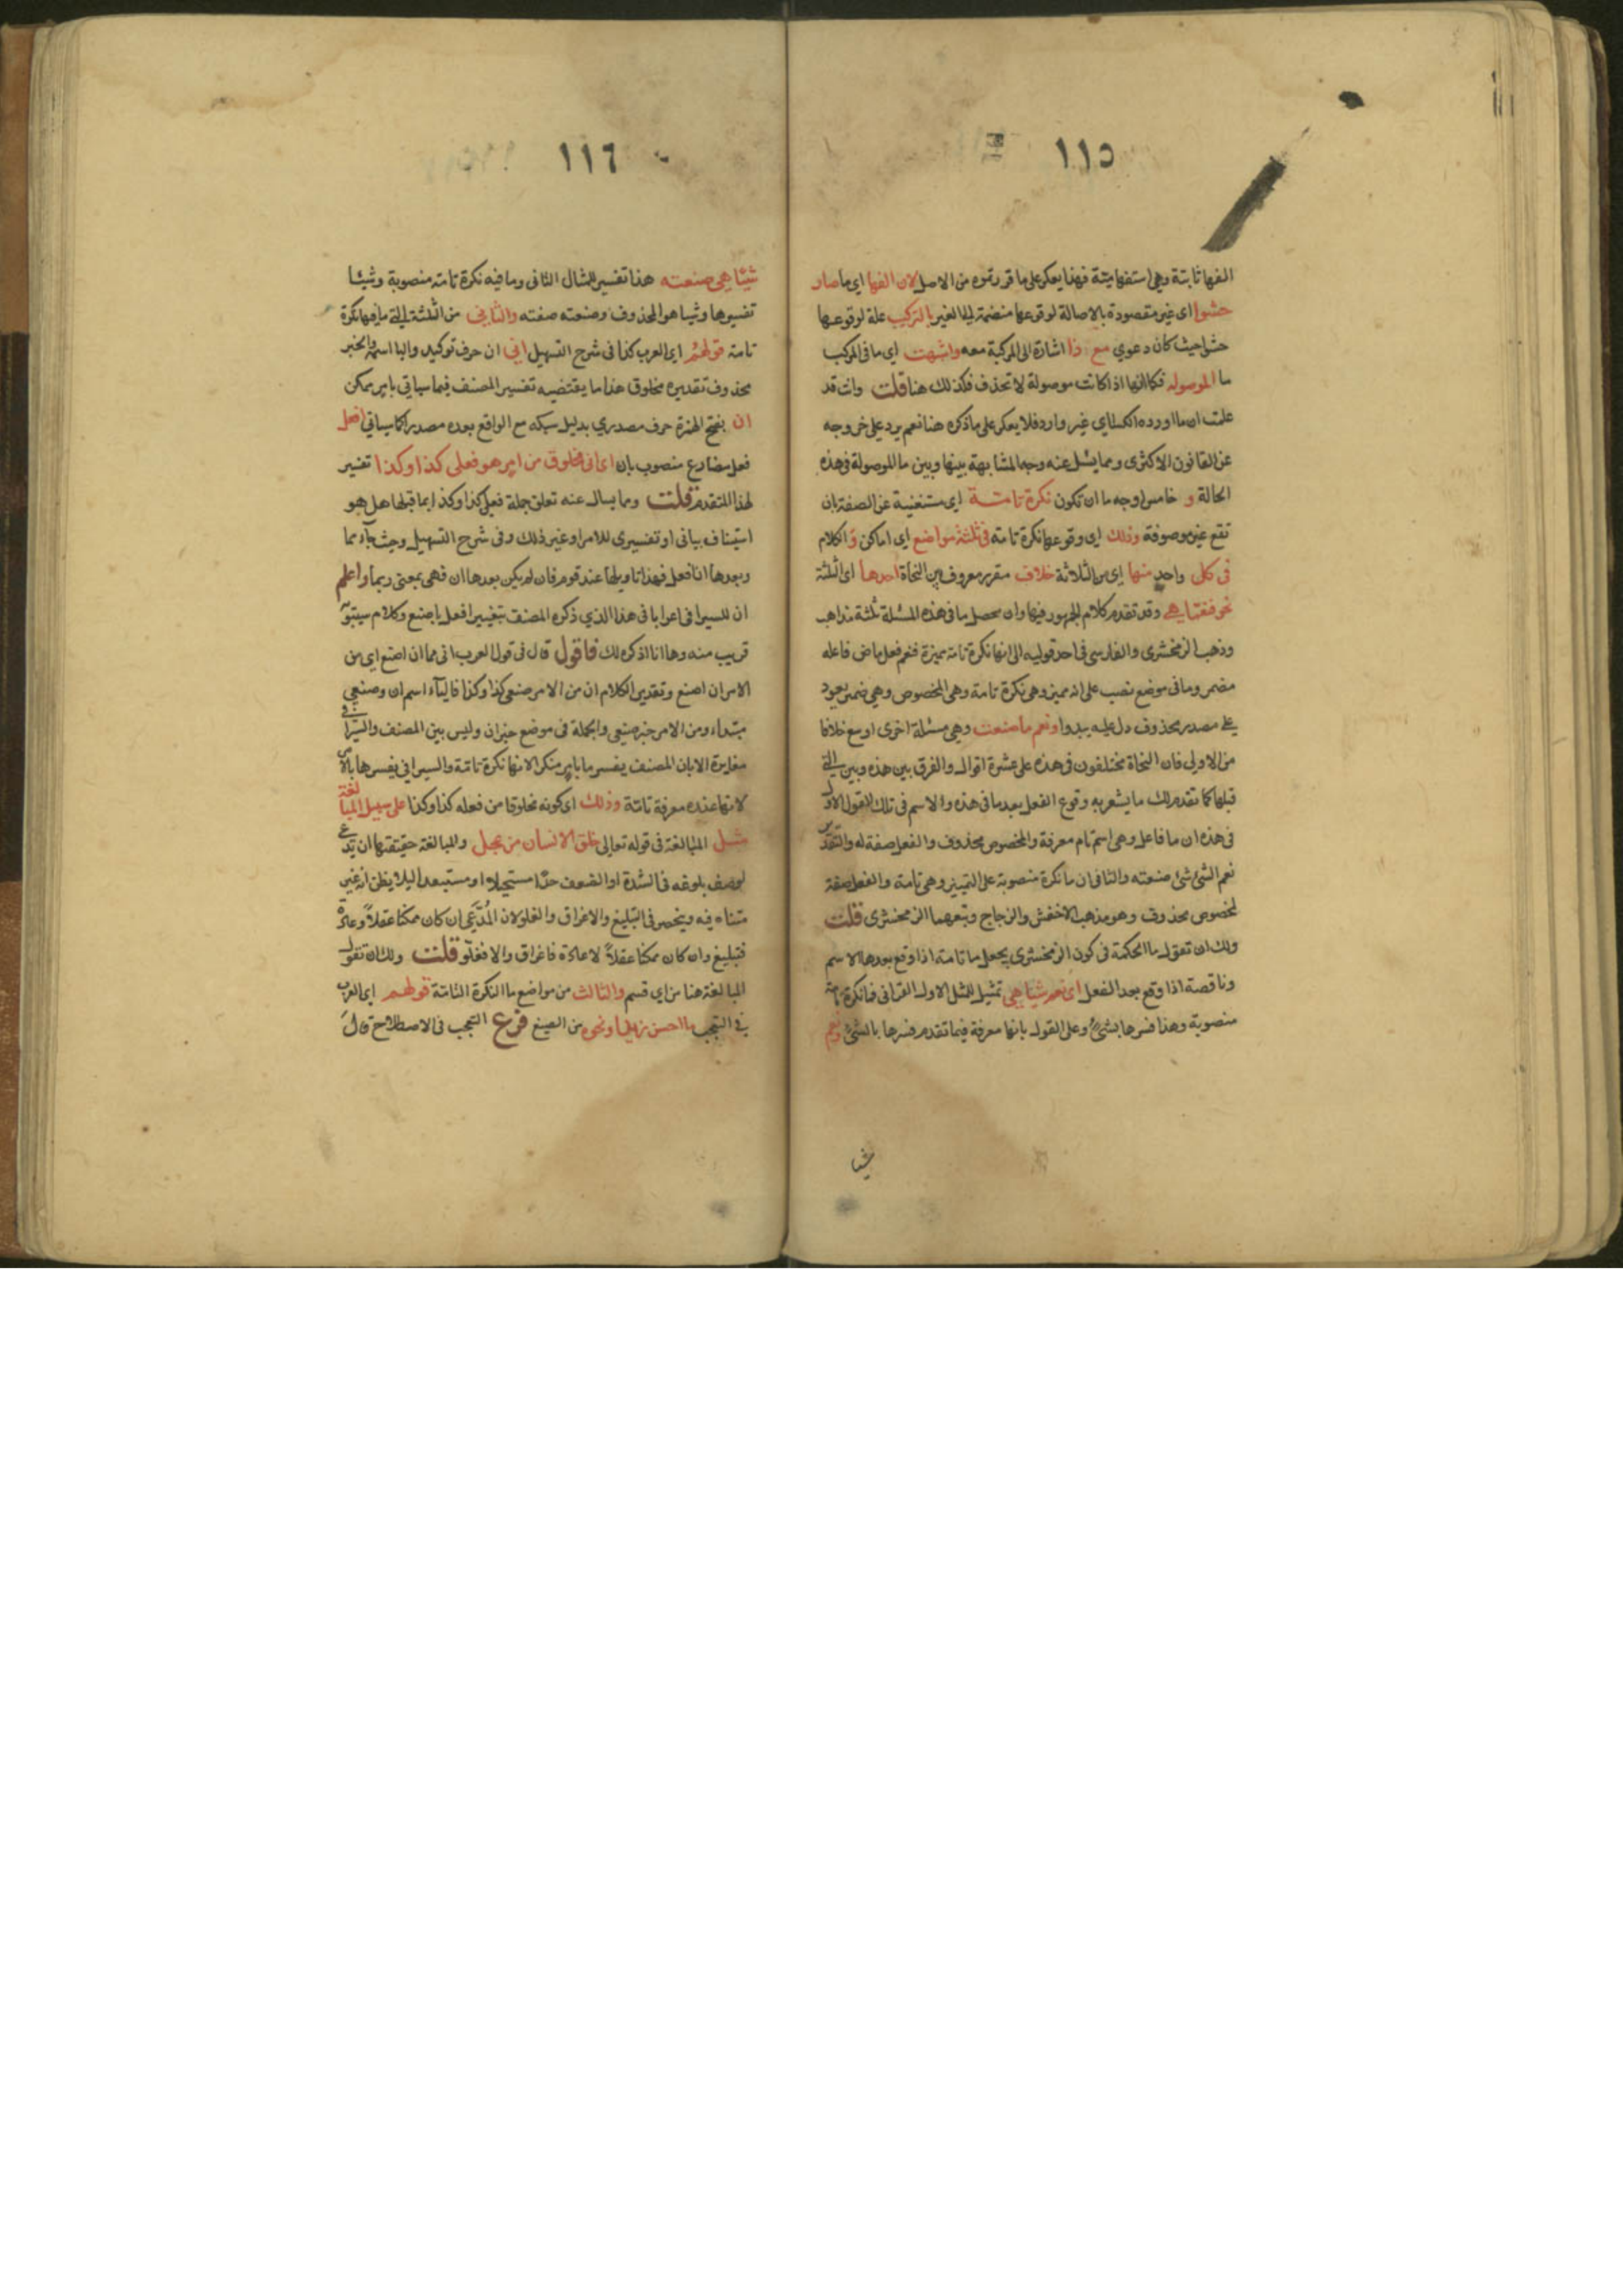 ١١٥
الفها ثابتة وهي استفهامية فهذا يعكر على ما قررتموه من الاصل لان الفها اي ما صار
حشوا اى غير مقصودة بالاصالة لوقوعها منضمة الى الغير بالتركيب علة لوقوعها
حشوا حيث كان دعوي مع ذا اشارة الى المركبة معه واشبهت اي ما في المركب
ما الموصوله فكما انها اذا كانت موصولة لا تحذف فكذلك هنا قلت وانت قد
علمت ان ما اورده الكسائي غير وارد فلا يعكر على ما ذكره هنا نعم يرد على خروجه
عن القانون الاكثرى ومما يسئل عنه وجه المشابهة بينها وبين ما الموصولة في هذه
الحالة و خامس اوجه ما ان تكون نكرة تامة اي مستغنية عن الصفة بان
تقع غير موصوفة وذلك اى وقوعها نكرة تامة في ثلثة مواضع اي اماكن و الكلام
فى كل واحد منها اي من الثلاثة خلاف مقرر معروف بين النحاة احدها اى الثلثة
نحو فنعما هي وقد تقدم كلام الجمهور فيها وان محصل ما في هذه المسئلة ثلثة مذاهب
وذهب الزمخشرى والفارسى في احد قوليه الى انها نكرة تامة مميزة فنعم فعل ماض فاعله
مضمر وما في موضع نصب على انه مميز وهي نكرة تامة وهي المخصوص وهي ضمير يعود
على مصدر محذوف دل عليه تبدوا ونعم ما صنعت وهي مسئلة اخرى اوسع خلافا
من الاولى فان النحاة مختلفون في هذه على عشرة اقوال والفرق بين هذه وبين التي
قبلها كما تقدم لك ما يشعر به وقوع الفعل بعد ما في هذه والاسم في تلك القول الاول
فى هذه ان ما فاعل وهى اسم تام معرفة والمخصوص محذوف والفعل صفة له والتقدير
نعم الشئ شئ صنعته والثانى ان ما نكرة منصوبة على التمييز وهي تامة والفعل صفة
لمخصوص محذوف وهو مذهب الاخفش والزجاج وتبعهما الزمخشرى قلت
ولك ان تقول ما الحكمة فى كون الزمخشرى يجعل ما تامة اذا وقع بعدها الاسم
وناقصة اذا وقع بعد الفعل اى نعم شيا هي تمثيل للمثل الاول القرانى فما نكرة تامة
منصوبة وهذا فسرها بشئ وعلى القول بانها معرفة فيما تقدم فسرها بالشئ ونعم
شيا
١١٦
شيئا هي صنعته هذا تفسير للمثال الثانى وما فيه نكرة تامة منصوبة وشيئا
تفسيرها وشيا هو المحذوف وصنعته صفته والثاني من الثلثة التي ما فيها نكرة
تامة قولهم اي العرب كذا فى شرح التسهيل اني ان حرف توكيد واليا اسمه والخبر
محذوف تقديره مخلوق هذا ما يقتضيه تفسير المصنف فيما سياتي بامر ممكن
ان بفتح الهمزة حرف مصدري بدليل سبكه مع الواقع بعده مصدرا كما سياتي افعل
فعل مضارع منصوب بان اى انى مخلوق من امر هو فعلى كذا وكذا تفسير
لهذا المتقدم قلت ومما يسال عنه تعلق جملة فعلى كذا وكذا بما قبلها هل هو
استيناف بيانى او تفسيرى للامر او غير ذلك وفى شرح التسهيل وحيث جاء مما
وبعدها انا فعل فهذا تاويلها عند قوم فان لم يكن بعدها ان فهى بمعنى ربما واعلم
ان للسيرافى اعرابا فى هذا الذي ذكره المصنف بتغيير افعل باصنع وكلام سيبويه
قريب منه وها انا اذكره لك فاقول قال فى قول العرب انى مما ان اصنع اى من
الامر ان اصنع وتقدير الكلام ان من الامر صنعى كذا وكذا فالياء اسم ان وصنعى
مبتداء ومن الامر خبر صنيعى والجملة فى موضع خبر ان وليس بين المصنف والسيرافي
مغايرة الا بان المصنف يفسر ما بامر منكر لانها نكرة تامة والسيرافي يفسرها بالامر
لانها عنده معرفة تامة وذلك اى كونه مخلوقا من فعله كذا وكذا على سبيل المبالغة
مثل المبالغة فى قوله تعالى خلق الانسان من عجل والمبالغة حقيقتها ان يدعى
لوصف بلوغه فى الشدة او الضعف حدا مستحيلا او مستبعدا ليلا يظن انه غير
متناه فيه وينحصر فى التبليغ والاغراق والغلو لان المُدَّعَى ان كان ممكنا عقلاً وعادة
فتبليغ وان كان ممكنا عقلاً لا عادة فاغراق والا فغلو قلت ولك ان تقول
المبالغة هنا من اي قسم والثالث من مواضع ما النكرة التامة قولهم اى العرب
في التعجب ما احسن زيدا ونحوه من الصيغ فرع التعجب فى الاصطلاح قال